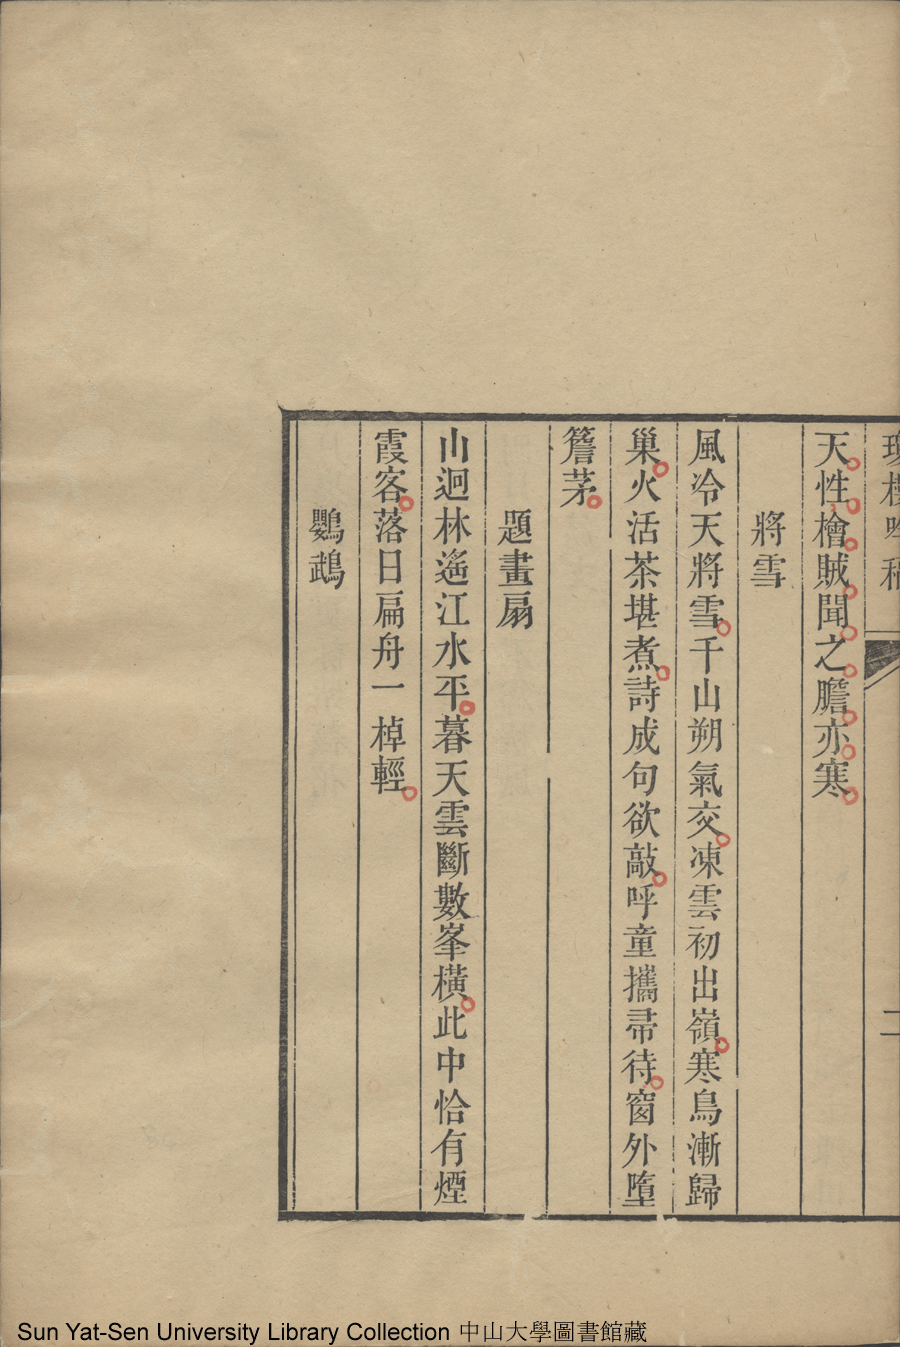 天性檜賊聞之膽亦寒
將雪
風冷天將雪千山朔氣交凍雲初出嶺寒鳥漸歸
巢火活茶堪煮詩成句欲敲呼童攜帚待窗外墮
簷茅
題畫扇
山迴林遶江水平暮天雲斷數峯橫此中恰有煙
霞客落日扁舟一棹輕
鸚鵡
Sun Yat-Sen University Library Collection 中山大學圖書館藏